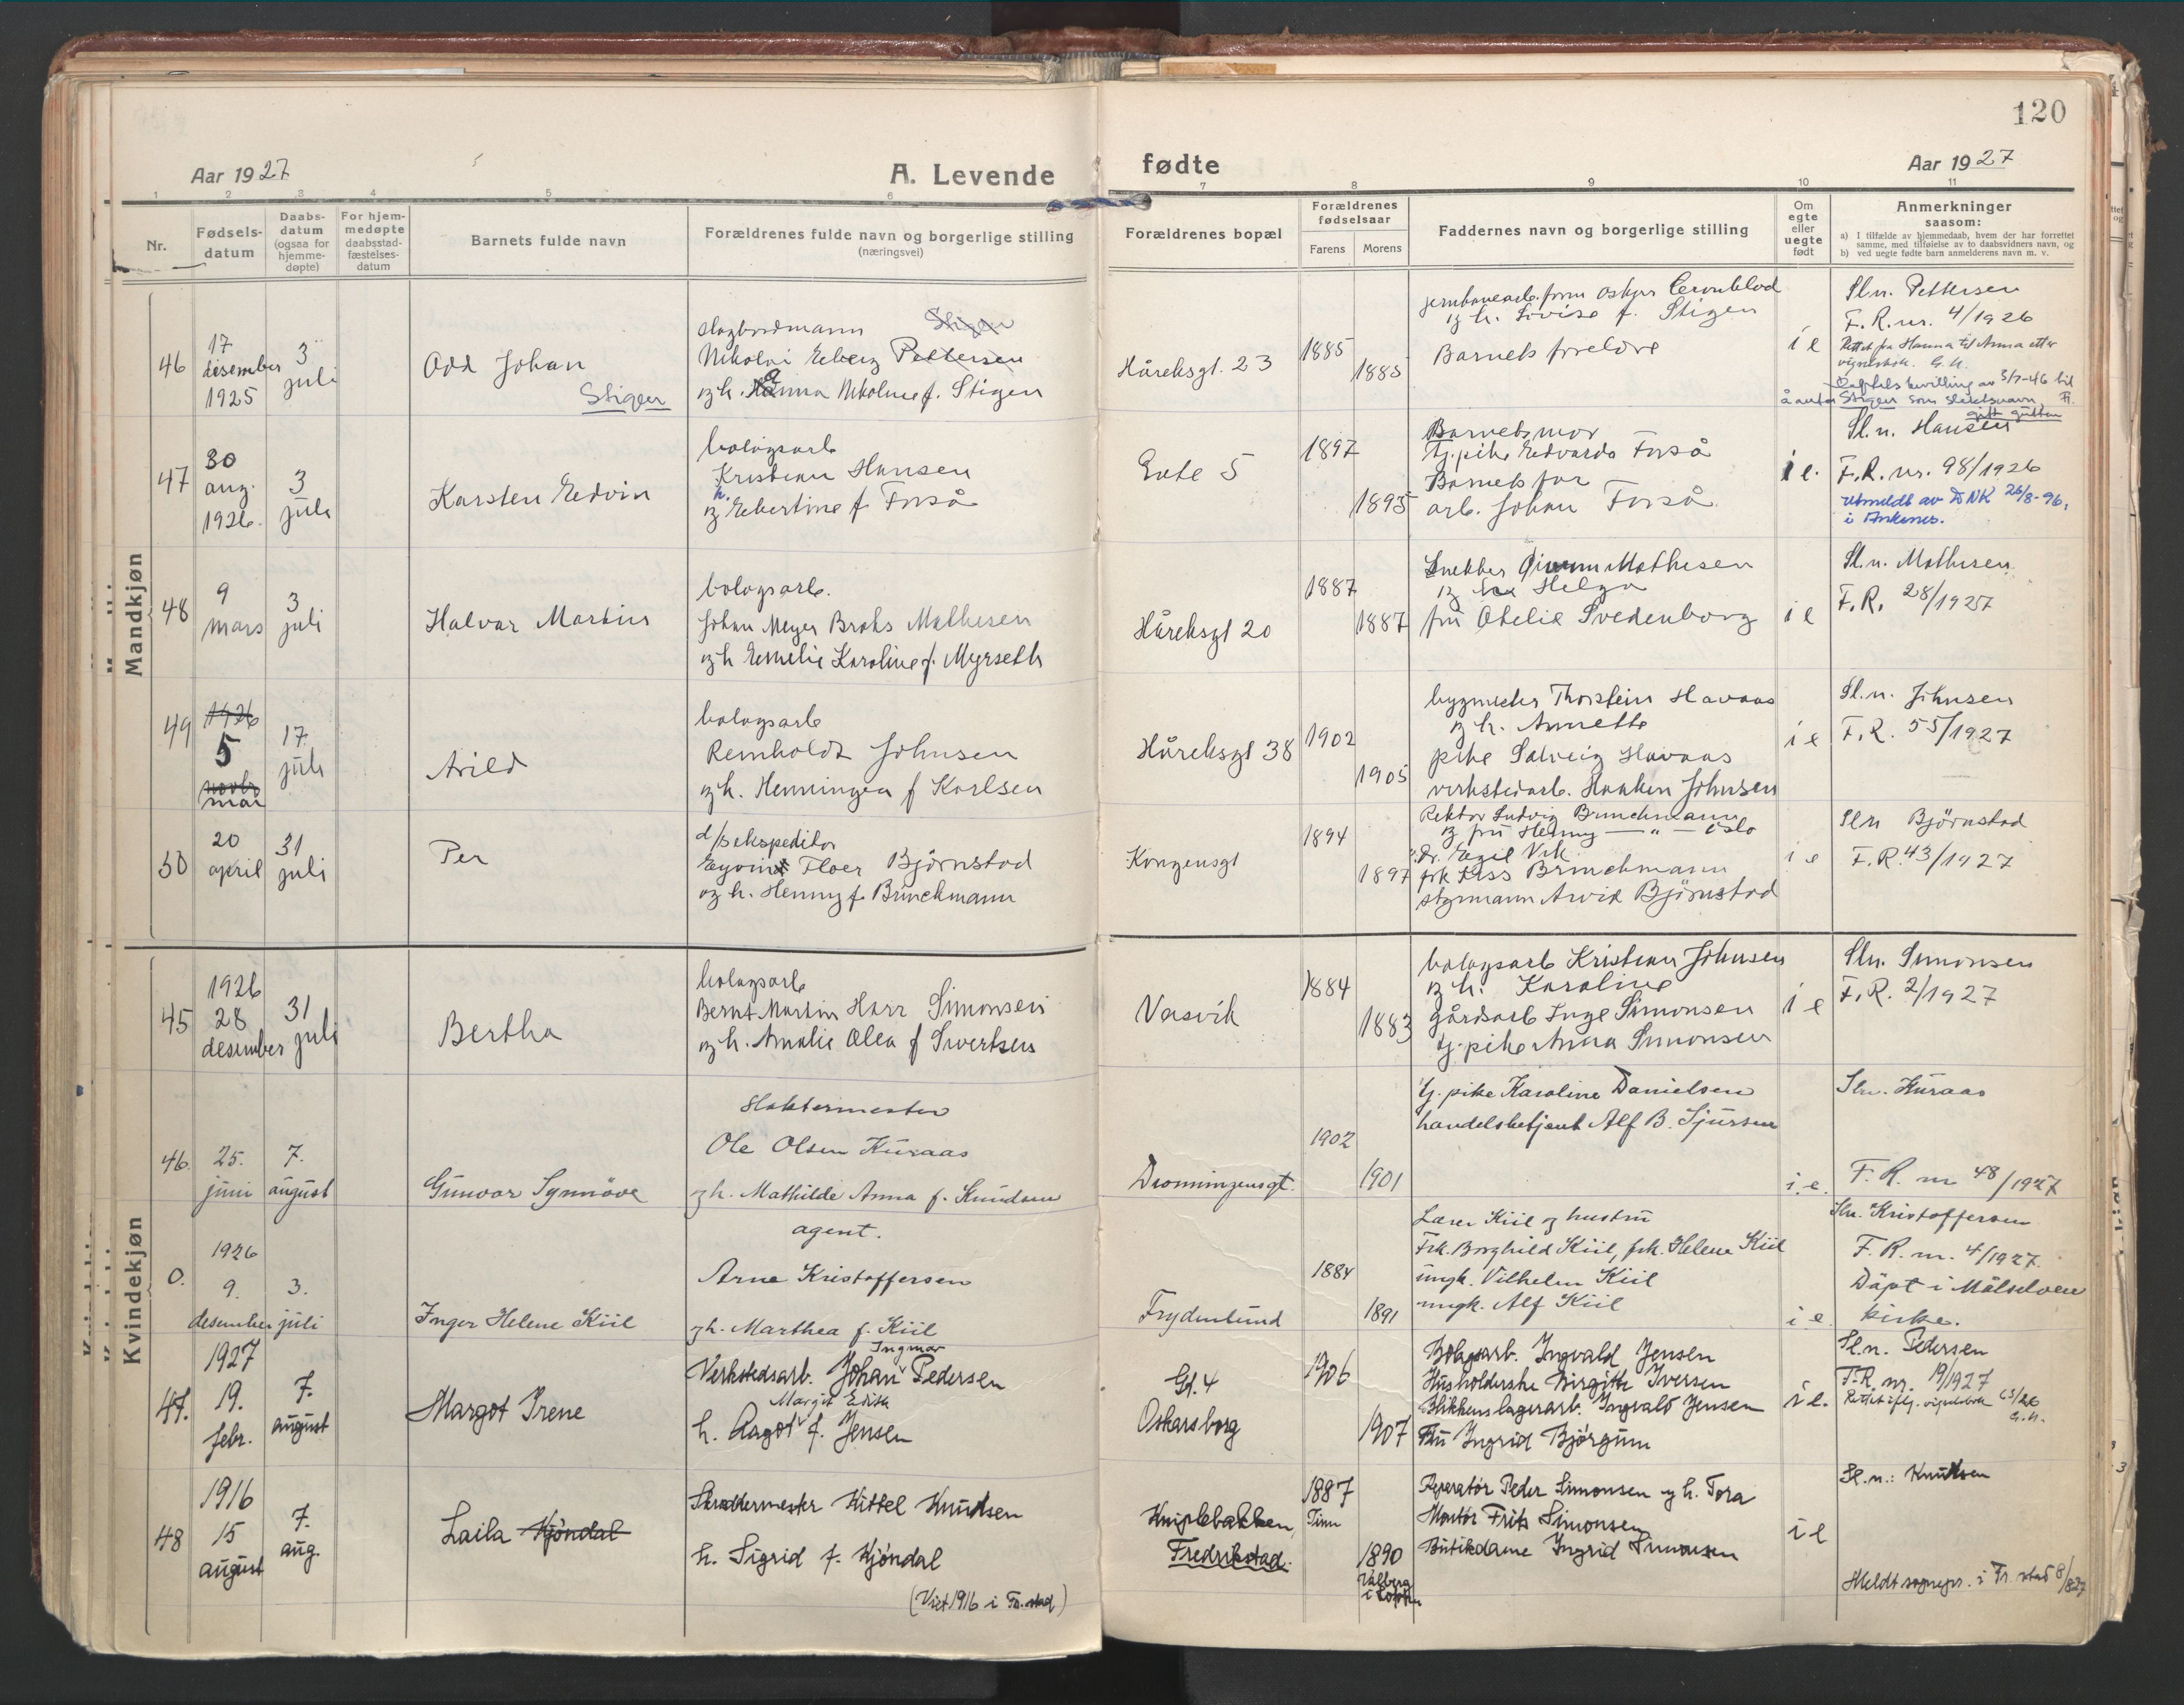 120
Aar 1927
A. Levende
fødte
Aar 1927
1 2 3 4 5 6 7 8 9 10 11
Nr.
Fødsels-
datum
Daabs-
datum
(ogsaa for
hjemme-
døpte)
For hjem-
medøpte
daabsstad-
fæstelses-
datum
Barnets fulde navn
Forældrenes fulde navn og borgerlige stilling
(næringsvei)
Forældrenes bopæl
Forældrenes
fødselsaar
Farens
Morens
Faddernes navn og borgerlige stilling
Om
egte
eller
uegte
født
Anmerkninger
saasom:
a) I tilfælde av hjemmedaab, hvem der har forrettet
samme, med tilføielse av to daabsvidners navn, og
b) ved uegte fødte barn anmelderens navn m. v.
Mandkjøn
46
17
desember
1925
3
juli
Odd Johan
Stigen
Stigen
Nikolai Pettersen
og h. Anna Nikoline f. Stigen
Håreksgt. 23
1885
1885
og h. Lovise f. Stigen
Barnets foreldre
i e
Sln. Pettersen
F. R. nr. 4/1926
Rettet fra Hanna til Anna etter
vigselsbok. G. H.
bevilling av 5/7-46 til
å anta Stigen som slektsnavn
47
30
aug.
1926
3
juli
Karsten Edvin
bolagsarb
Kristian Hansen
h.
og Ebertine f. Forså
Gate 5
1897
1895
Barnets mor
Tj. pike Edvarda Forså
Barnets far
arb. Johan Forså
i e.
Sl. n. Hansen
F. R. nr. 98/1926
Utmeldt av DNK 26/8-96.
i Ankenes.
48
9
mars
3
juli
Halvar Martin
bolagsarb.
Johan Meyer Broks Mathisen
og h Emelie Karoline f. Myrseth
Håreksgt 20
1887
1887
Snekker Mathisen
og Helga
fru Otelie Svedenborg
i e
Sl. n. Mathisen
F. R. 28/1927
49
1926
5
novbr
mai
17
juli
Arild
bolagsarb
Reinholdt Johnsen
og h. Henningea f Karlsen
Håreksgt 38
1902
1905
bygmester Thorstein Havaas
og h. Annette
pike Solveig Havaas
verkstedarb. Haaken Johnsen
i e
Sl. n. Johnsen
F. R. 55/1927
50
20
april
31
juli
Per
d/s ekspeditør
Eyvin Floer Bjørnstad
og h. Henny f. Brinchmann
Kongensgt
1894
1897
Rektor Ludvig Brinchmann
og fru Henny — " — Oslo
Dr. Egil Vik
frk Liss Brinchmann
styrmann Arvid Bjørnstad
i e
Sln Bjørnstad
F. R. 43/1927
Kvindekjøn
45
1926
28
desember
31
juli
Bertha
bolagsarb
Bernt Martin Harr Simonsen
og h. Amalie Olea f Sivertsen
Vasvik
1884
1883
bolagsarb Kristian Johnsen
og h. Karoline
gårdsarb Inge Simonsen
tj. pike Anna Simonsen
i e
Sln. Simonsen
F. R. 2/1927
46.
25.
juni
7.
august
Gunvor Synnöve
Slaktermester
Ole Olsen Kuraas
og h. Mathilde Anna f. Knudsen
Dronningensgt.
1902
1901
Tj. pike Karoline Danielsen
handelsbetjent Alf B. Sjursen
i. e.
Sln. Kuraas
F. R. nr 48/1927
0.
1926
9.
desember
3.
juli
Inger Helene Kiil
agent.
Arne Kristoffersen
og h. Marthea f. Kiil
Frydenlund
1884
1891
Lærer Kiil og hustru
Frk. Borghild Kiil, frk. Helene Kiil
ungk. Vilhelm Kiil
ungk. Alf Kiil
i e.
Sln. Kristoffersen
F. R. nr. 4/1927.
Døpt i Målselven
kirke.
47.
1927
19.
febr.
7.
august
Margot Irene
Ingmar
Verkstedsarb. Johan Pedersen
Margit Edith
h. Aagot f. Jensen
Gt. 4
Oskarsborg
1906
1907
Bolagsarb. Ingvald Jensen
Husholderske Birgith Iversen
Blikkenslagerarb. Ingvald Jensen
Fru Ingrid Bjørgum
i e.
Sl. n. Pedersen
F.R. nr. 19/1927
Rettet iflg. vigselsbok
G. H.
48
1916
15
august
7.
aug.
Laila Kjöndal
Skreddermester Kittel Knudsen
h. Sigrid f. Kjöndal
(Viet 1916 i Fr.stad)
Kniplebakken,
Fredrikstad.
1887
Tinn
1890
Reperatør Peder Simonsen og h. Tora
Montør Frits Simonsen
Butikdame Ingrid Simonsen
i e
Sl. n.: Knudsen
Meldt sognepr. i Fr.stad 8/8 27